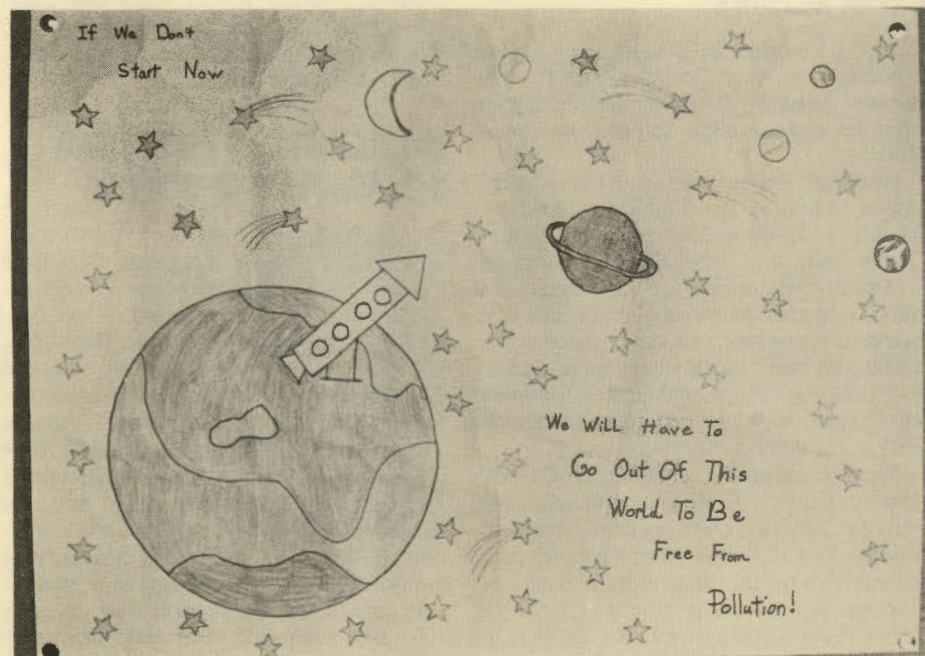 If We Don't
Start Now
We Will Have To
Go Out Of This
World To Be
Free From
Pollution!